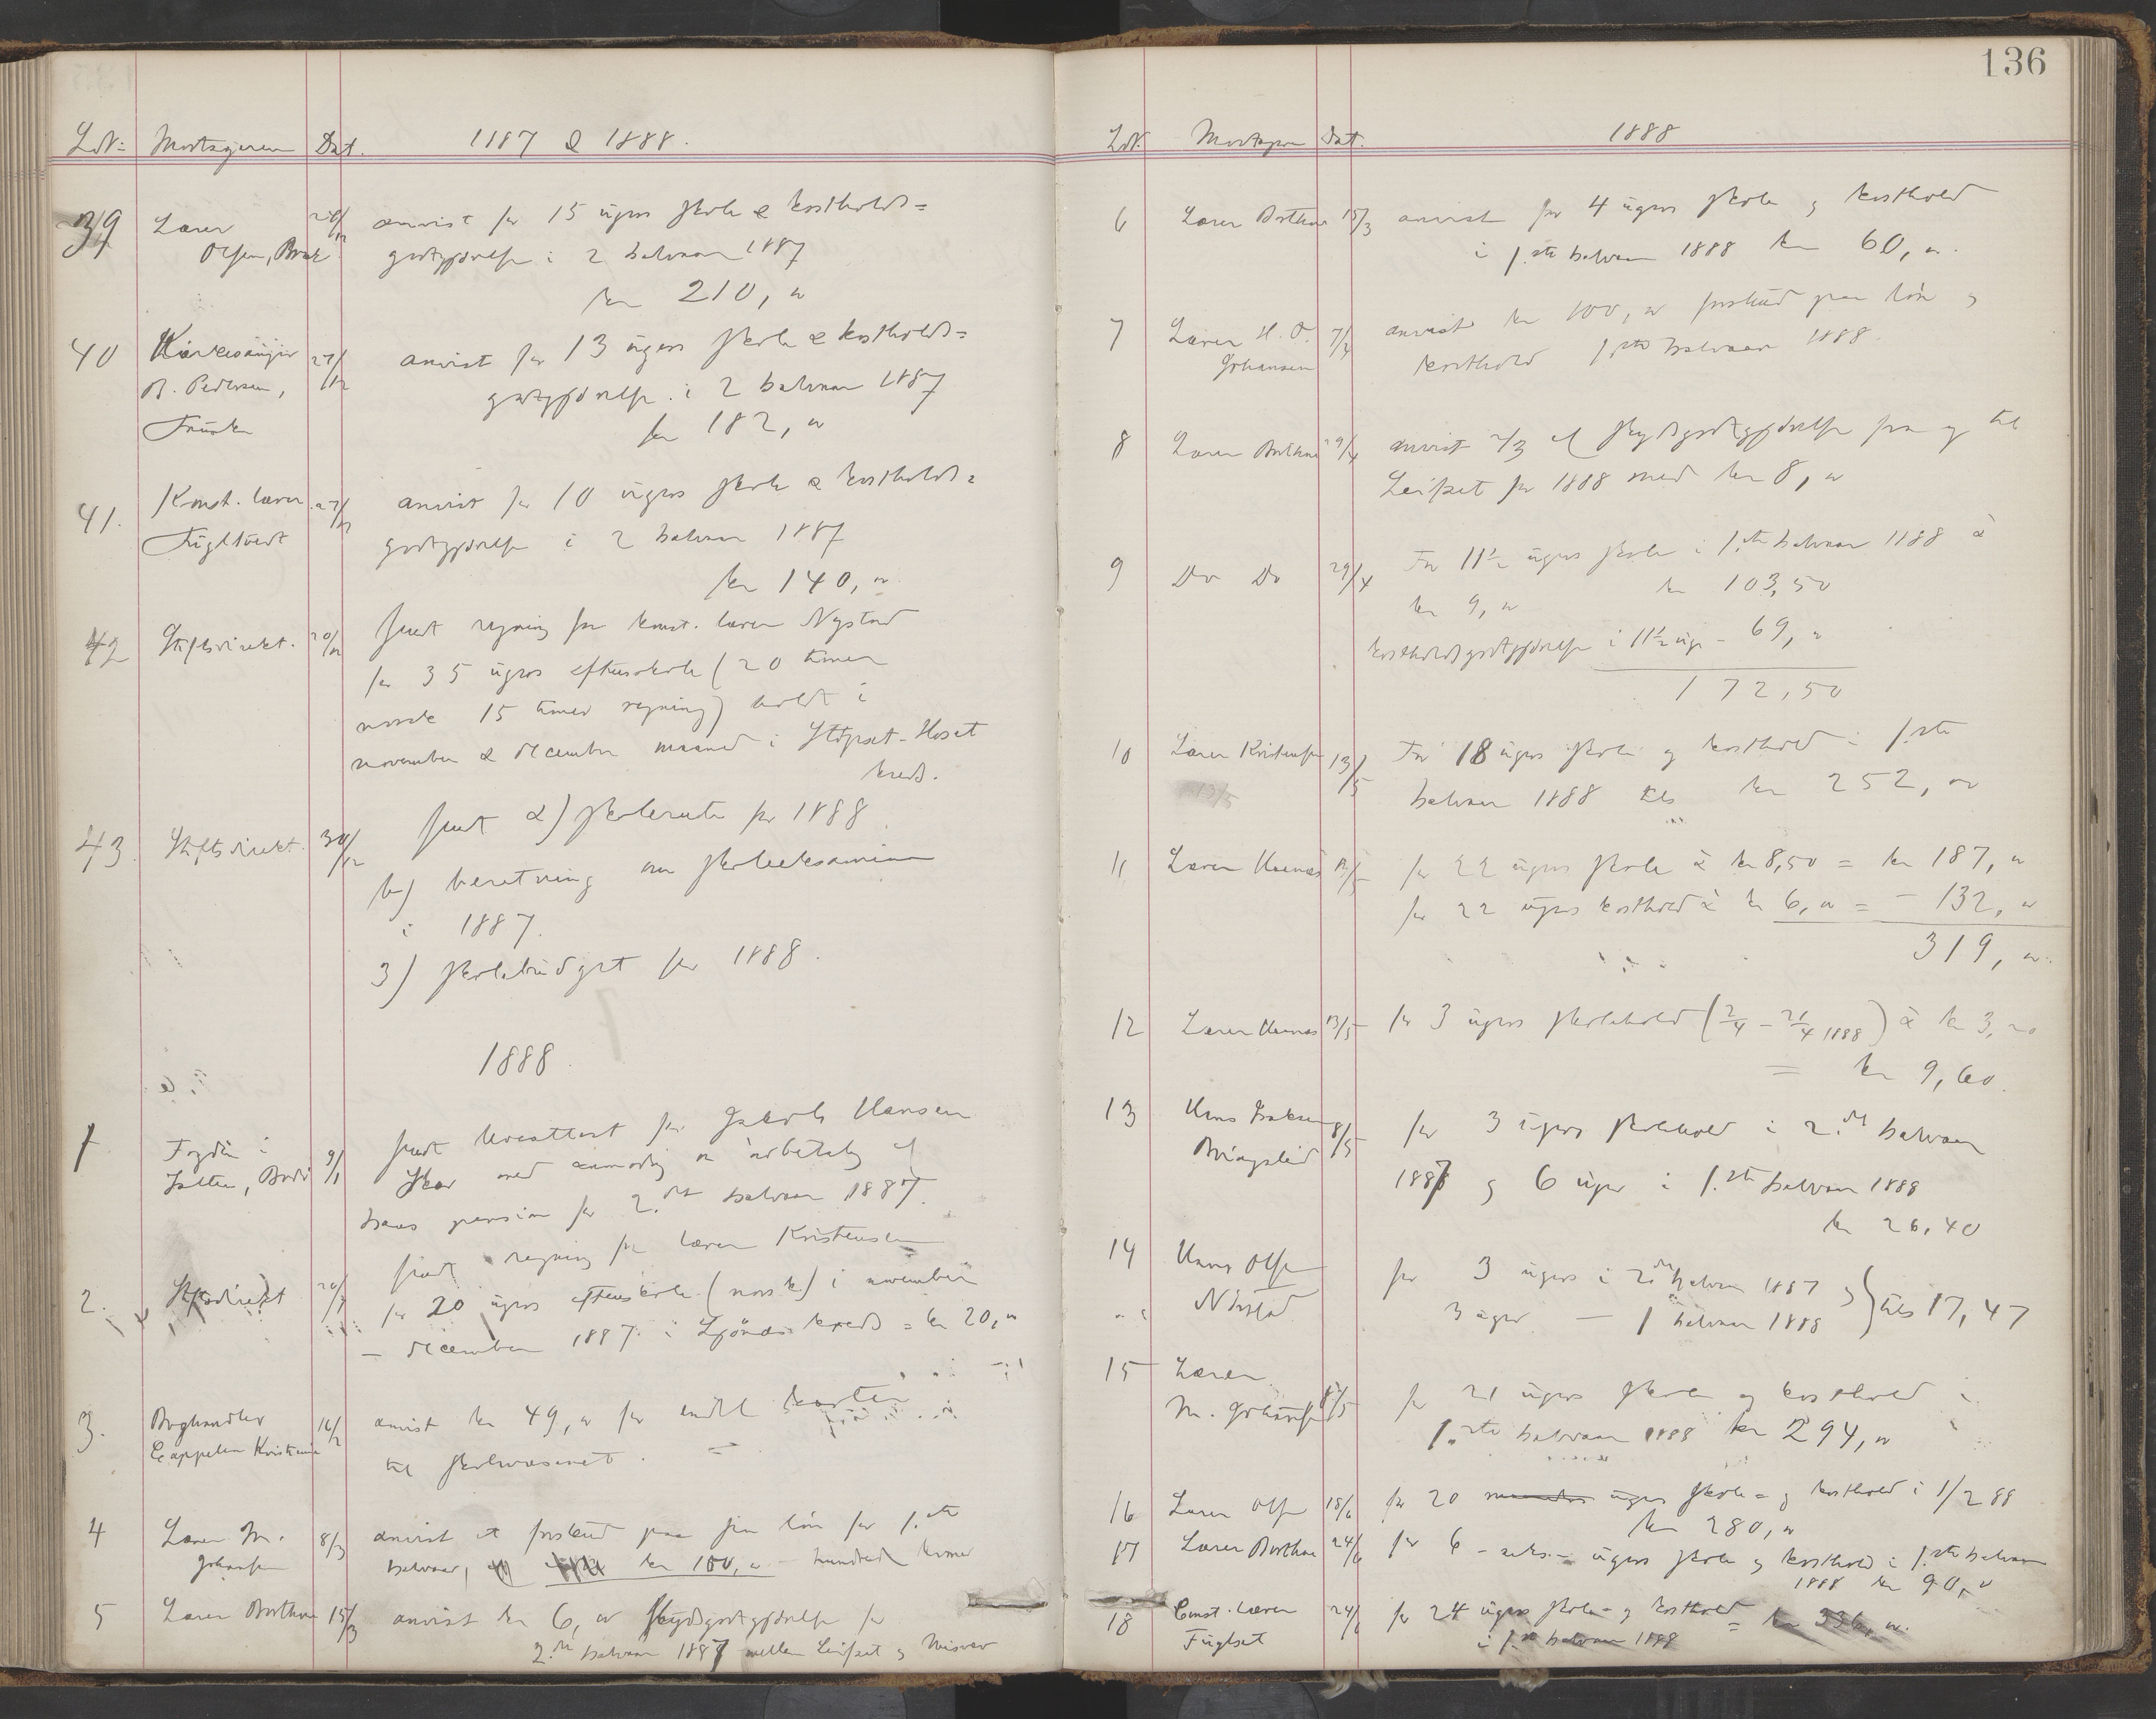 LN: Modtageren Dat. 1887 & 1888.
39 Lærer 20/12 anvist for 15 ugers skole & kostholds=
Olsen, godtgjørelse i 2 halvaar 1887
kr 210, "
40 Kirkesanger 27/12 anvist for 13 ugers skole & kostholds=
B. Pedersen, godtgjørelse i 2 halvaar 1887
kr 182, "
41. Konst. lærer 27/12 anvist for 10 ugers skole & kostholds=
godtgjørelse i 2 halvaar 1887
kr 140, "
42 Stiftsdirekt. 20/12 sendt regning fra konst. lærer Nystad
for 35 ugers aftenskole (20 timer
norsk 15 timer regning) holdt i
november & december maaned i Hoset
kreds.
43 Stiftsdirekt. 30/12 sendt a) skolerute for 1888
b) beretning om skoleeksamen
i 1887.
3) skolebudget for 1888.
1888.
1 Fogden i 9/1 sendt leveattest for Jakob Hansen
Salten, Bodø med anmodng om udbetalg af
hans pension for 2.det halvaar 1887.
2. Stiftsdirekt sendt regning fra lærer Kristensen
for 20 ugers aftenskole (norsk) i november
– december 1887 i kreds = kr 20, "
3. Boghandler 16/2 anvist kr 49, " for karter
Cappelen Kristiania til skolevæsenet.
4 Lærer M. 8/3 anvist et forskud paa sin løn for 1.ste
Johansen halvaar, kr 100, " – hundrede kroner
5 Lærer 15/3 anvist kr 6, " skydsgodtgjørelse for
2.det halvaar 1887 mellem Leifset og Misvær
136
LN. Modtageren Dat. 1888
6 Lærer 15/3 anvist for 4 ugers skole og kosthold
i 1.ste halvaar 1888 kr 60, "
7 Lærer H. O. 7/4 anvist kr 100, " forskud paa løn og
Johansen kosthold 1ste halvaar 1888.
8 Lærer 29/4 anvist 2/3 af skydsgodtgjørelse fra og til
Leifset for 1888 med kr 8, "
9 Do Do 29/4 For 11½ ugers skole i 1.ste halvaar 1888 à
kr 9, " kr 103,50
kostholdsgodtgjørelse i 11½ uge – 69, "
172,50
10 Lærer Kristensen 13/5 For 18 ugers skole og kosthold i 1.ste
13/5 halvaar 1888 tils kr 252, "
11 Lærer for 22 ugers skole à kr 8,50 = kr 187, "
for 22 ugers kosthold à kr 6, " = – 132, "
319, "
12 Lærer 13/5 for 3 ugers skolehold (2/4 – 21/4 1888) à kr 3,20
= kr 9,60.
13 Hans 8/5 for 3 ugers skolehold i 2.det halvaar
1887 og 6 uger i 1.ste halvaar 1888
kr 26,40
14 Hans Olsen for 3 ugers i 2det halvaar 1887 og } tils 17,47
3 uger – 1 halvaar 1888
15 Lærer
M. Johansen for 21 ugers skole og kosthold i
1.ste halvaar 1888 kr 294, "
16 Lærer Olsen 18/6 for 20 ugers skole= og kosthold i 1/2 88
kr 280, "
17 Lærer 24/6 for 6 – seks – ugers skole og kosthold i 1.ste halvaar
1888 kr 90, "
18 Const. lærer 24/6 for 24 ugers skole- og kosthold = kr 336, "
Fuglset i 1.ste halvaar 1888